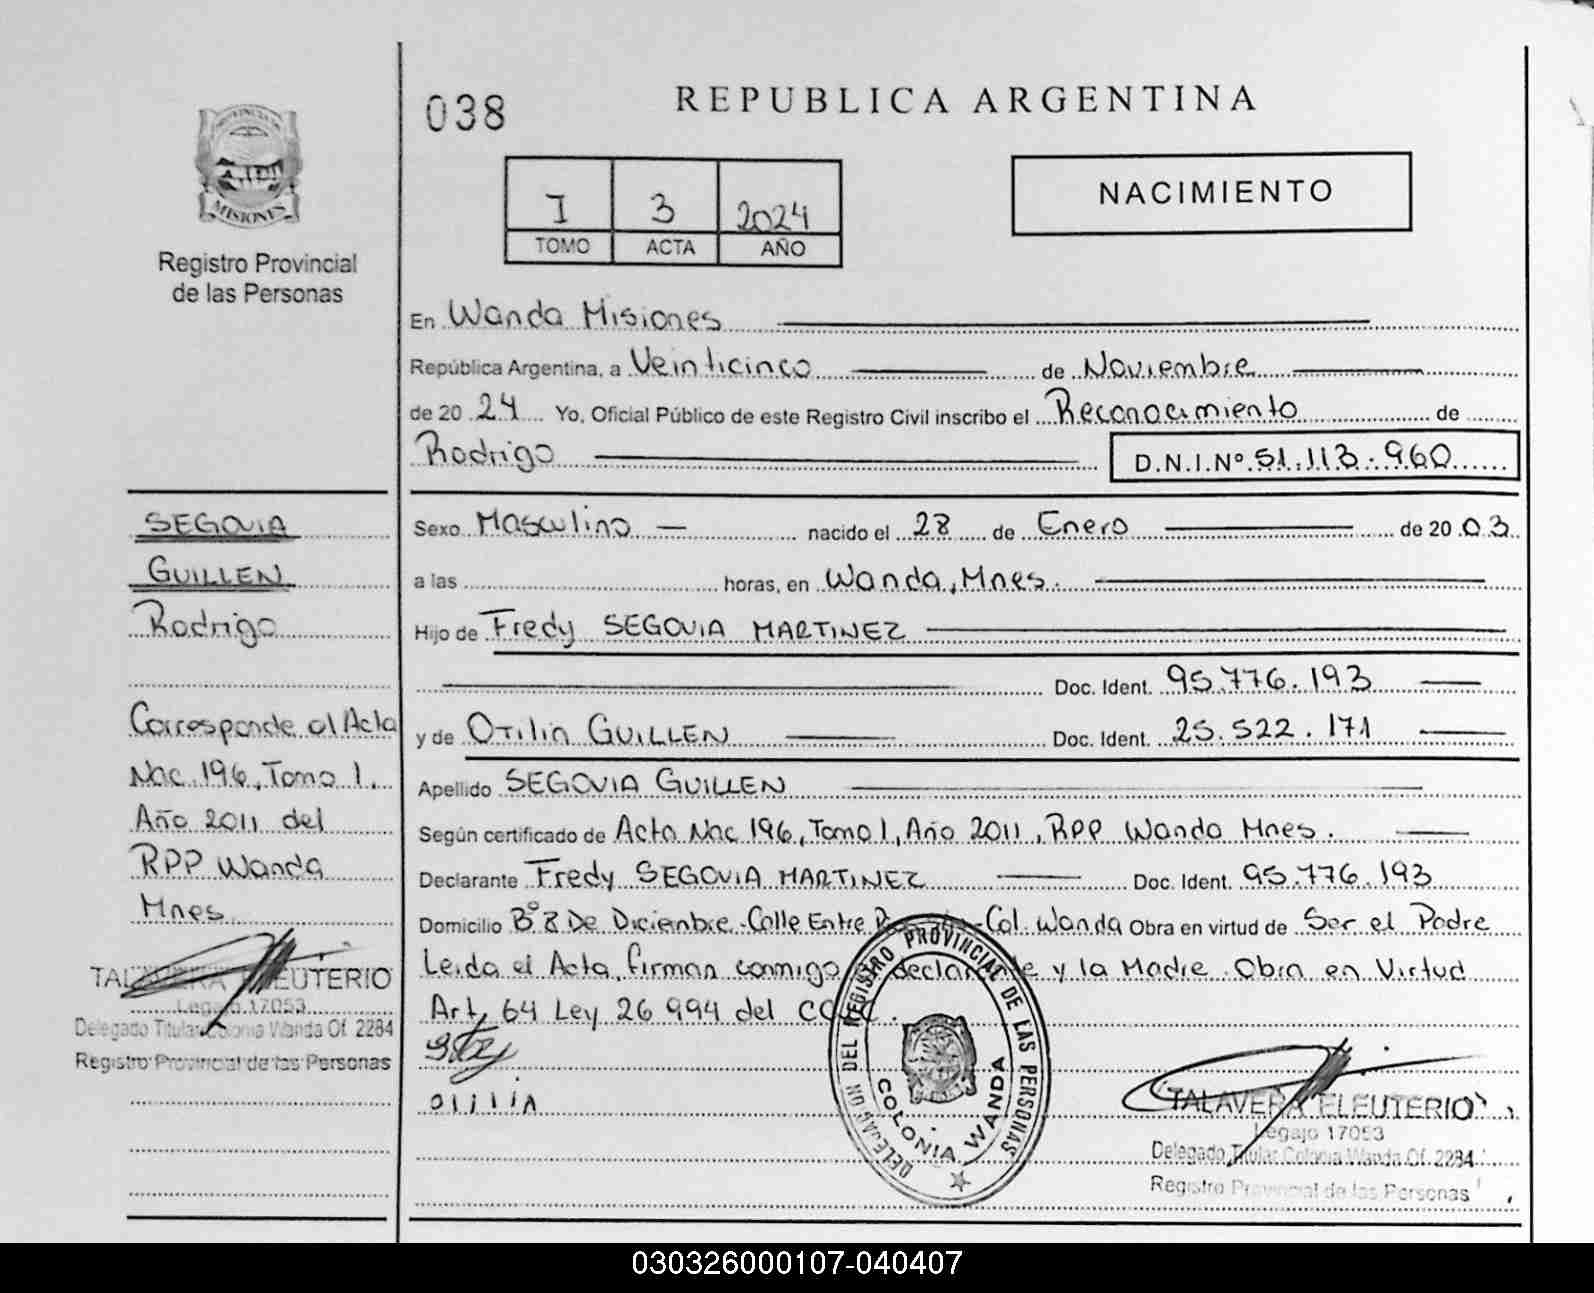 038
REPUBLICA ARGENTINA
PROVINCIA DE
MISIONES
Registro Provincial
de las Personas
I 3 2024
TOMO ACTA AÑO
NACIMIENTO
En Wanda Misiones
República Argentina, a Veinticinco de Noviembre
de 20 24 Yo, Oficial Público de este Registro Civil inscribo el Reconocimiento de
Rodrigo D.N.I.Nº 51.113.960
SEGOVIA
GUILLEN
Rodrigo
Corresponde al Acta
Nac 196, Tomo 1.
Año 2011 del
RPP Wanda
Mnes
TALAVERA ELEUTERIO
Legajo 17053
Delegado Titular Colonia Wanda Of. 2284
Registro Provincial de las Personas
Sexo Masculino nacido el 28 de Enero de 20 03
a las horas, en Wanda, Mnes.
Hijo de Fredy SEGOVIA MARTINEZ
Doc. Ident. 95.776.193
y de OTiliA GUILLEN Doc. Ident. 25.522.171
Apellido SEGOVIA GUILLEN
Según certificado de Acta Nac 196, Tomo 1, Año 2011, RPP Wanda Mnes.
Declarante Fredy SEGOVIA MARTINEZ Doc. Ident. 95.776.193
Domicilio Bº 8 De Diciembre - Calle Entre - Col. Wanda Obra en virtud de Ser el Padre
Leida el Acta, firman conmigo declarante y la Madre. Obra en Virtud
Art, 64 Ley 26 994 del
otiliA
DELEGACION DEL REGISTRO PROVINCIAL DE LAS PERSONAS
COLONIA WANDA
TALAVERA ELEUTERIO
Legajo 17053
Delegado Titular Colonia Wanda Of. 2284
Registro Provincial de las Personas
030326000107-040407